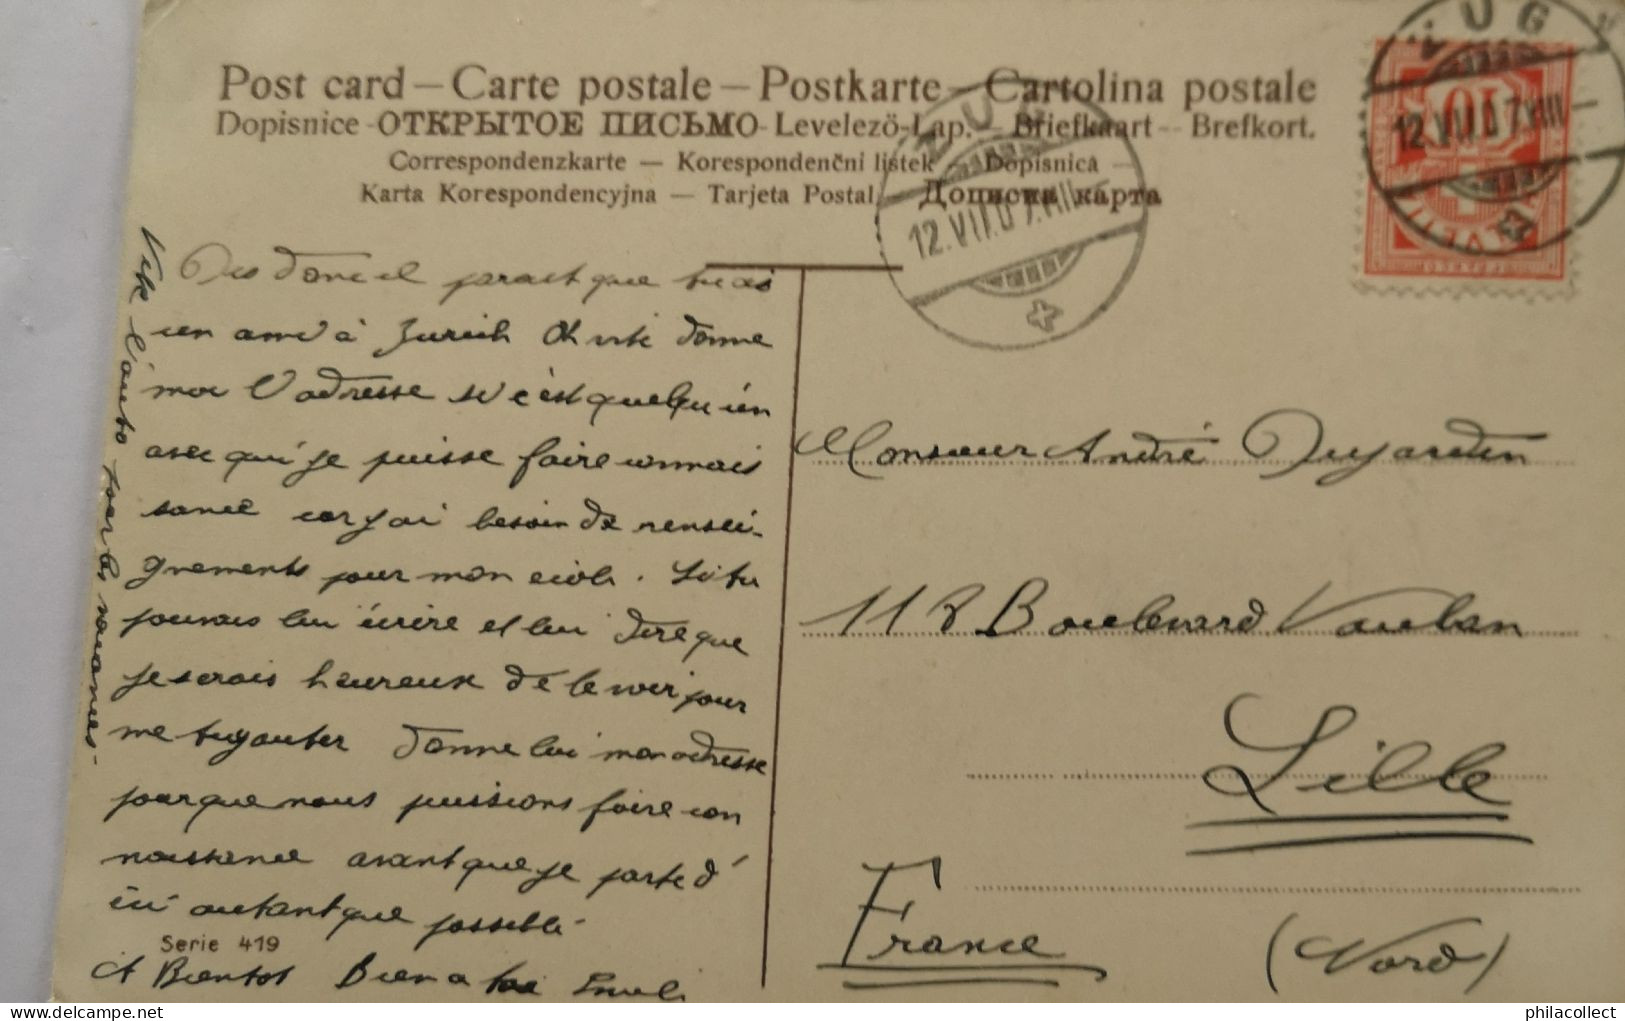 Post card – Carte postale – Postkarte – Cartolina postale
Dopisnice - ОТКРЫТОЕ ПИСЬМО - Levelezö-Lap. – Briefkaart – Brefkort.
Correspondenzkarte – Korespondenční listek – Dopisnica –
Karta Korespondencyjna – Tarjeta Postal. Дописна карта
ZUG
12.VII.07.VIII–
10
HELVETIA
ZUG
12.VII.07.VIII–
Dis donc il parait que tu as
un ami à Zurich Oh vite donne
moi l'adresse si c'est quelqu'un
avec qui je puisse faire connais
sance car j'ai besoin de rensei-
gnements pour mon école. Si tu
pouvais lui écrire et lui dire que
je serais heureux de le voir pour
me donne lui mon adresse
pour que nous puissions faire con
naissance avant que je parte d'
ici autant que possible.
A Bientot Bien a toi Emile
Vite l'auto pour les vacances.
Serie 419
Monsieur André Dujardin
118 Boulevard Vauban
Lille
France (Nord)
philacollect